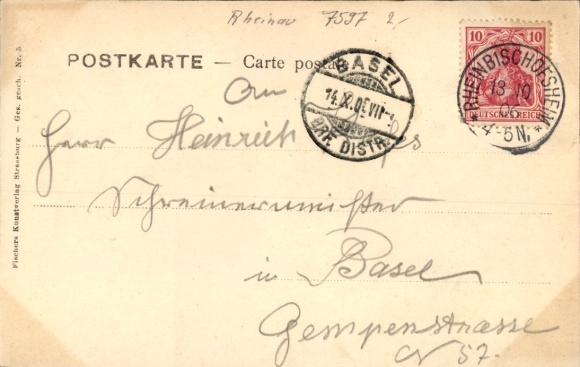 Rheinau 7597 2,-
POSTKARTE — Carte postale
10 10
DEUTSCHES REICH
RHEINBISCHOFSHEIM
13 10
4-5N.
BASEL
14.X.05.VII-
BRF. DISTR.
An
Herr Heinrich
Schreinermeister
in Basel
Gempenstrasse
N 57.
Fischers Kunstverlag Strassburg — Ges. gesch. Nr. 5